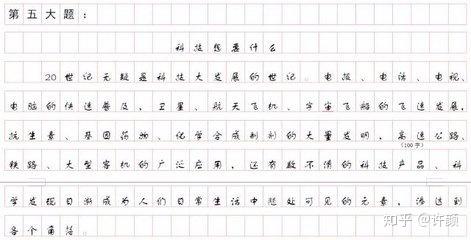 第五大题：
科技想要什么
20世纪无疑是科技大发展的世纪。电报、电话、电视、
电脑的快速普及，卫星、航天飞机、宇宙飞船的飞速发展，
抗生素、基因药物、化学合成制剂的大量发明，高速公路、
(100字)
铁路、大型客机的广泛应用，还有数不清的科技产品、科
学发现日渐成为人们日常生活中随处可见的元素，渗透到
各个角落。
知乎 @许颜